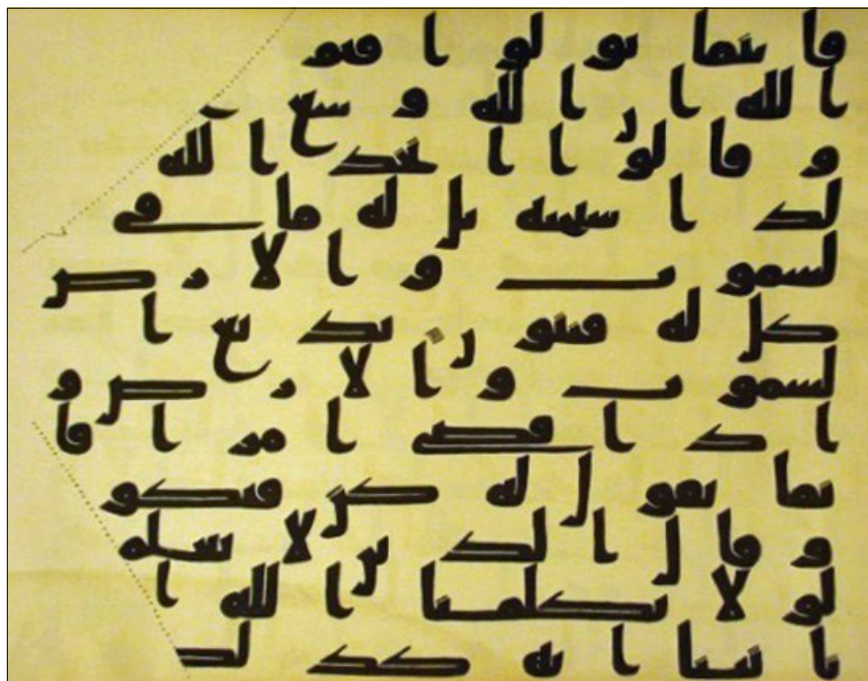 فاينما تولوا فثم
الله ان الله وسع
وقالوا اتخذ الله
لدا سبحنه بل له ما في
لسموت والارض
كل له قنتون بديع ا
لسموت والارض و
اذا قضى امرا فا
نما يقول له كن فيكو
وقال الذين لا يعلمو
لولا يكلمنا الله ا
تاتينا اية كذلك